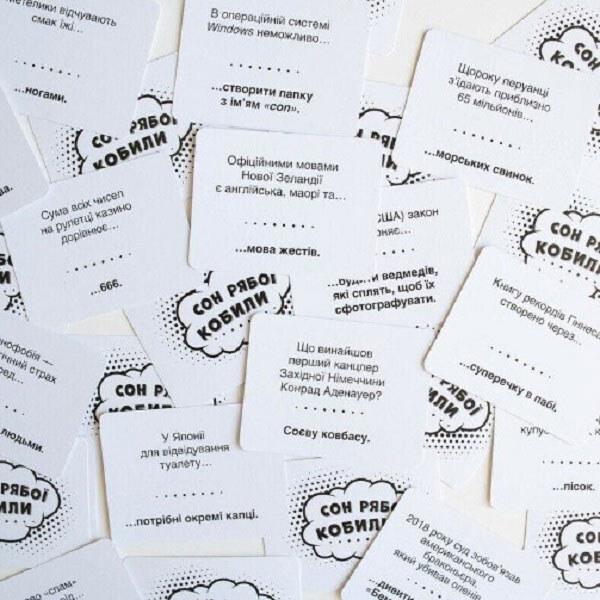 відчувають
смак їжі...
...ногами.
В операційній системі
Windows неможливо...
...створити папку
з ім'ям «con».
Щороку перуанці
з'їдають приблизно
65 мільйонів...
...морських свинок.
СОН РЯБОЇ
КОБИЛИ
Офіційними мовами
Нової Зеландії
є англійська, маорі та...
...мова жестів.
Сума всіх чисел
на рулетці казино
дорівнює...
...666.
США) закон
...будити ведмедів,
які сплять, щоб їх
сфотографувати.
СОН РЯБОЇ
КОБИЛИ
СОН
КОБИЛИ
Книгу рекордів
створено через...
...суперечку в пабі.
Що винайшов
перший канцлер
Західної Німеччини
Конрад Аденауер?
Соєву ковбасу.
страх
людьми.
У Японії
для відвідування
туалету...
...потрібні окремі капці.
...пісок.
СОН РЯБОЇ
КОБИЛИ
2018 року суд зобов'язав
американського
браконьєра,
який убивав оленів